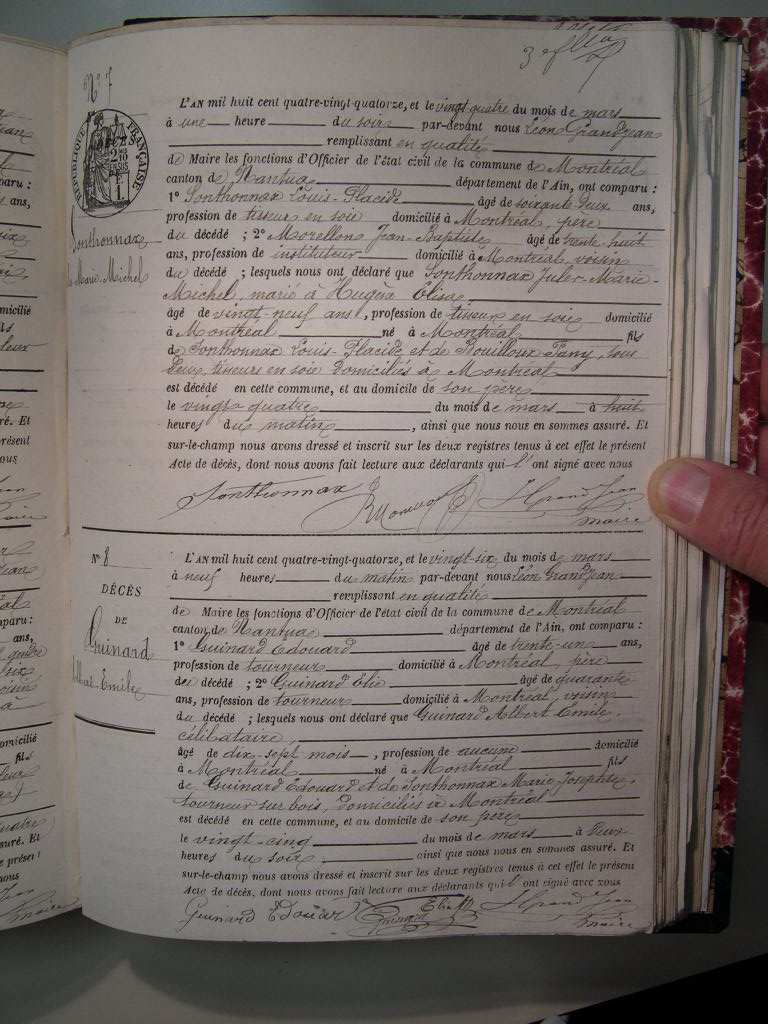 3e flla
N° 7
RÉPUBLIQUE FRANÇAISE
L'AN mil huit cent quatre-vingt-quatorze, et le vingt-quatre du mois de mars
à une heure du soir par-devant nous Léon Grandjean
remplissant en qualité
de Maire les fonctions d'Officier de l'état civil de la commune de Montréal
canton de Nantua département de l'Ain, ont comparu :
1° Sonthonnax Louis-Placide âgé de soixante deux ans,
profession de tisseur en soie domicilié à Montréal, père
du décédé ; 2° Morellon Jean-Baptiste âgé de trente huit
ans, profession de instituteur domicilié à Montréal, voisin
du décédé ; lesquels nous ont déclaré que Sonthonnax Jules-Marie-
Michel, marié à Hugua Elisa
âgé de vingt-neuf ans, profession de tisseur en soie domicilié
à Montréal né à Montréal fils
de Sonthonnax Louis-Placide et de Bouilloux Fany, tous
deux tisseurs en soie domiciliés à Montréal
est décédé en cette commune, et au domicile de son père
le vingt-quatre du mois de mars à huit
heures du matin, ainsi que nous nous en sommes assuré. Et
sur-le-champ nous avons dressé et inscrit sur les deux registres tenus à cet effet le présent
Acte de décès, dont nous avons fait lecture aux déclarants qui l'ont signé avec nous
Sonthonnax
L Grandjean
maire
Sonthonnax
Marie-Michel
N° 8
DÉCÈS
DE
Guinard
Albert-Emile
L'AN mil huit cent quatre-vingt-quatorze, et le vingt-six du mois de mars
à neuf heures du matin par-devant nous Léon Grandjean
remplissant en qualité
de Maire les fonctions d'Officier de l'état civil de la commune de Montréal
canton de Nantua département de l'Ain, ont comparu :
1° Guinard Edouard âgé de trente-un ans,
profession de tourneur domicilié à Montréal, père
du décédé ; 2° Guinard Elie âgé de quarante
ans, profession de tourneur domicilié à Montréal, voisin
du décédé ; lesquels nous ont déclaré que Guinard Albert Emile,
célibataire
âgé de dix-sept mois, profession de aucune domicilié
à Montréal né à Montréal fils
de Guinard Edouard et de Sonthonnax Marie Josephte,
tourneur sur bois, domiciliés à Montréal
est décédé en cette commune, et au domicile de son père
le vingt-cinq du mois de mars à deux
heures du soir, ainsi que nous nous en sommes assuré. Et
sur-le-champ nous avons dressé et inscrit sur les deux registres tenus à cet effet le présent
Acte de décès, dont nous avons fait lecture aux déclarants qui l'ont signé avec nous
Guinard Edouard Guinard Elie L Grandjean
maire